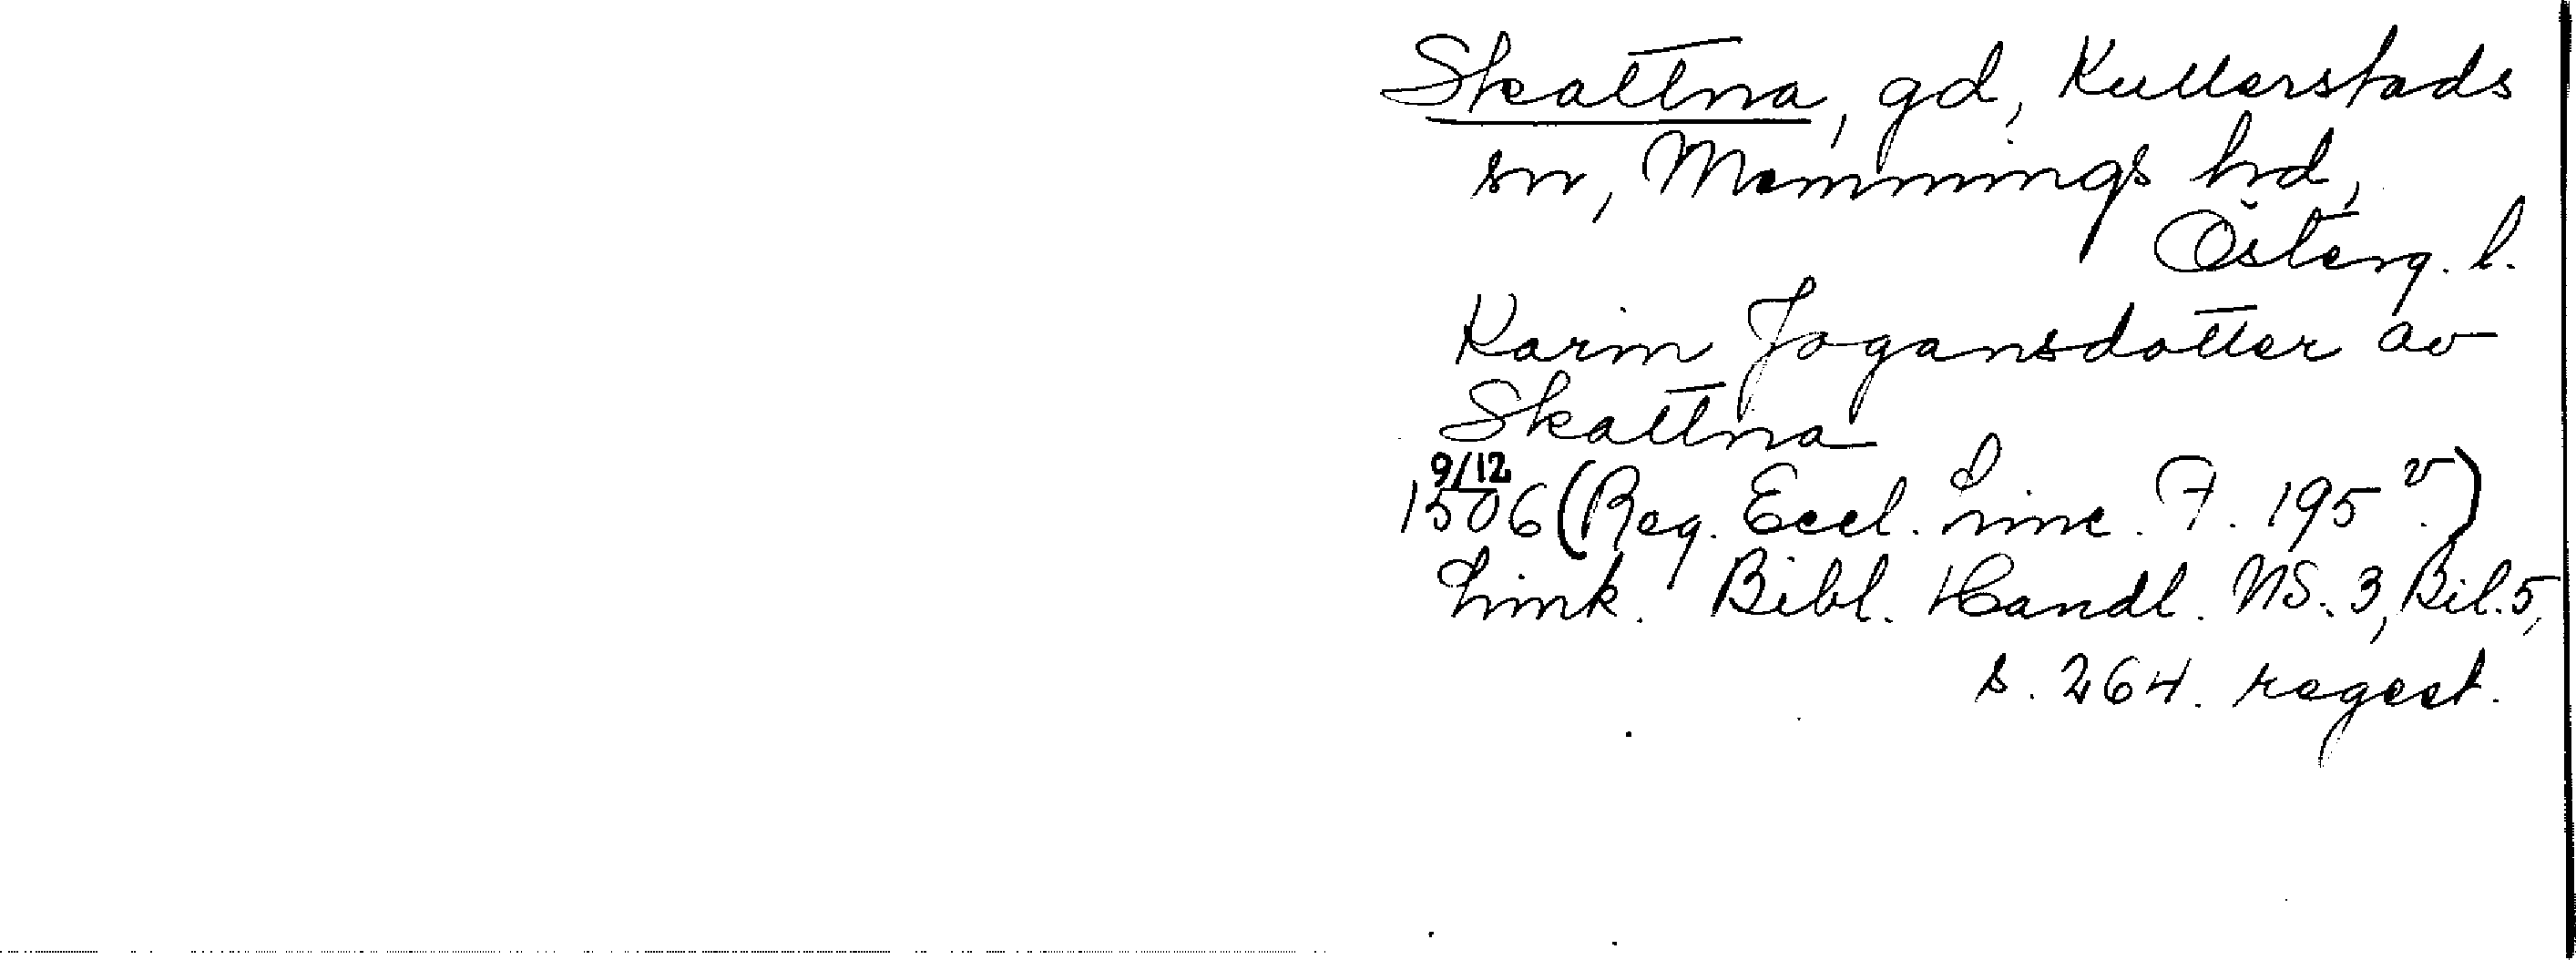 Skattna, gd, Kullerstads
sn, Memmings hd,
Österg. l.
Karin Jogansdotter av
Skattna
9/12
1506 (Reg. Eccl. Linc. F. 195 v.)
Link. Bibl. Handl. NS. 3, Bil. 5,
s. 264. regest.